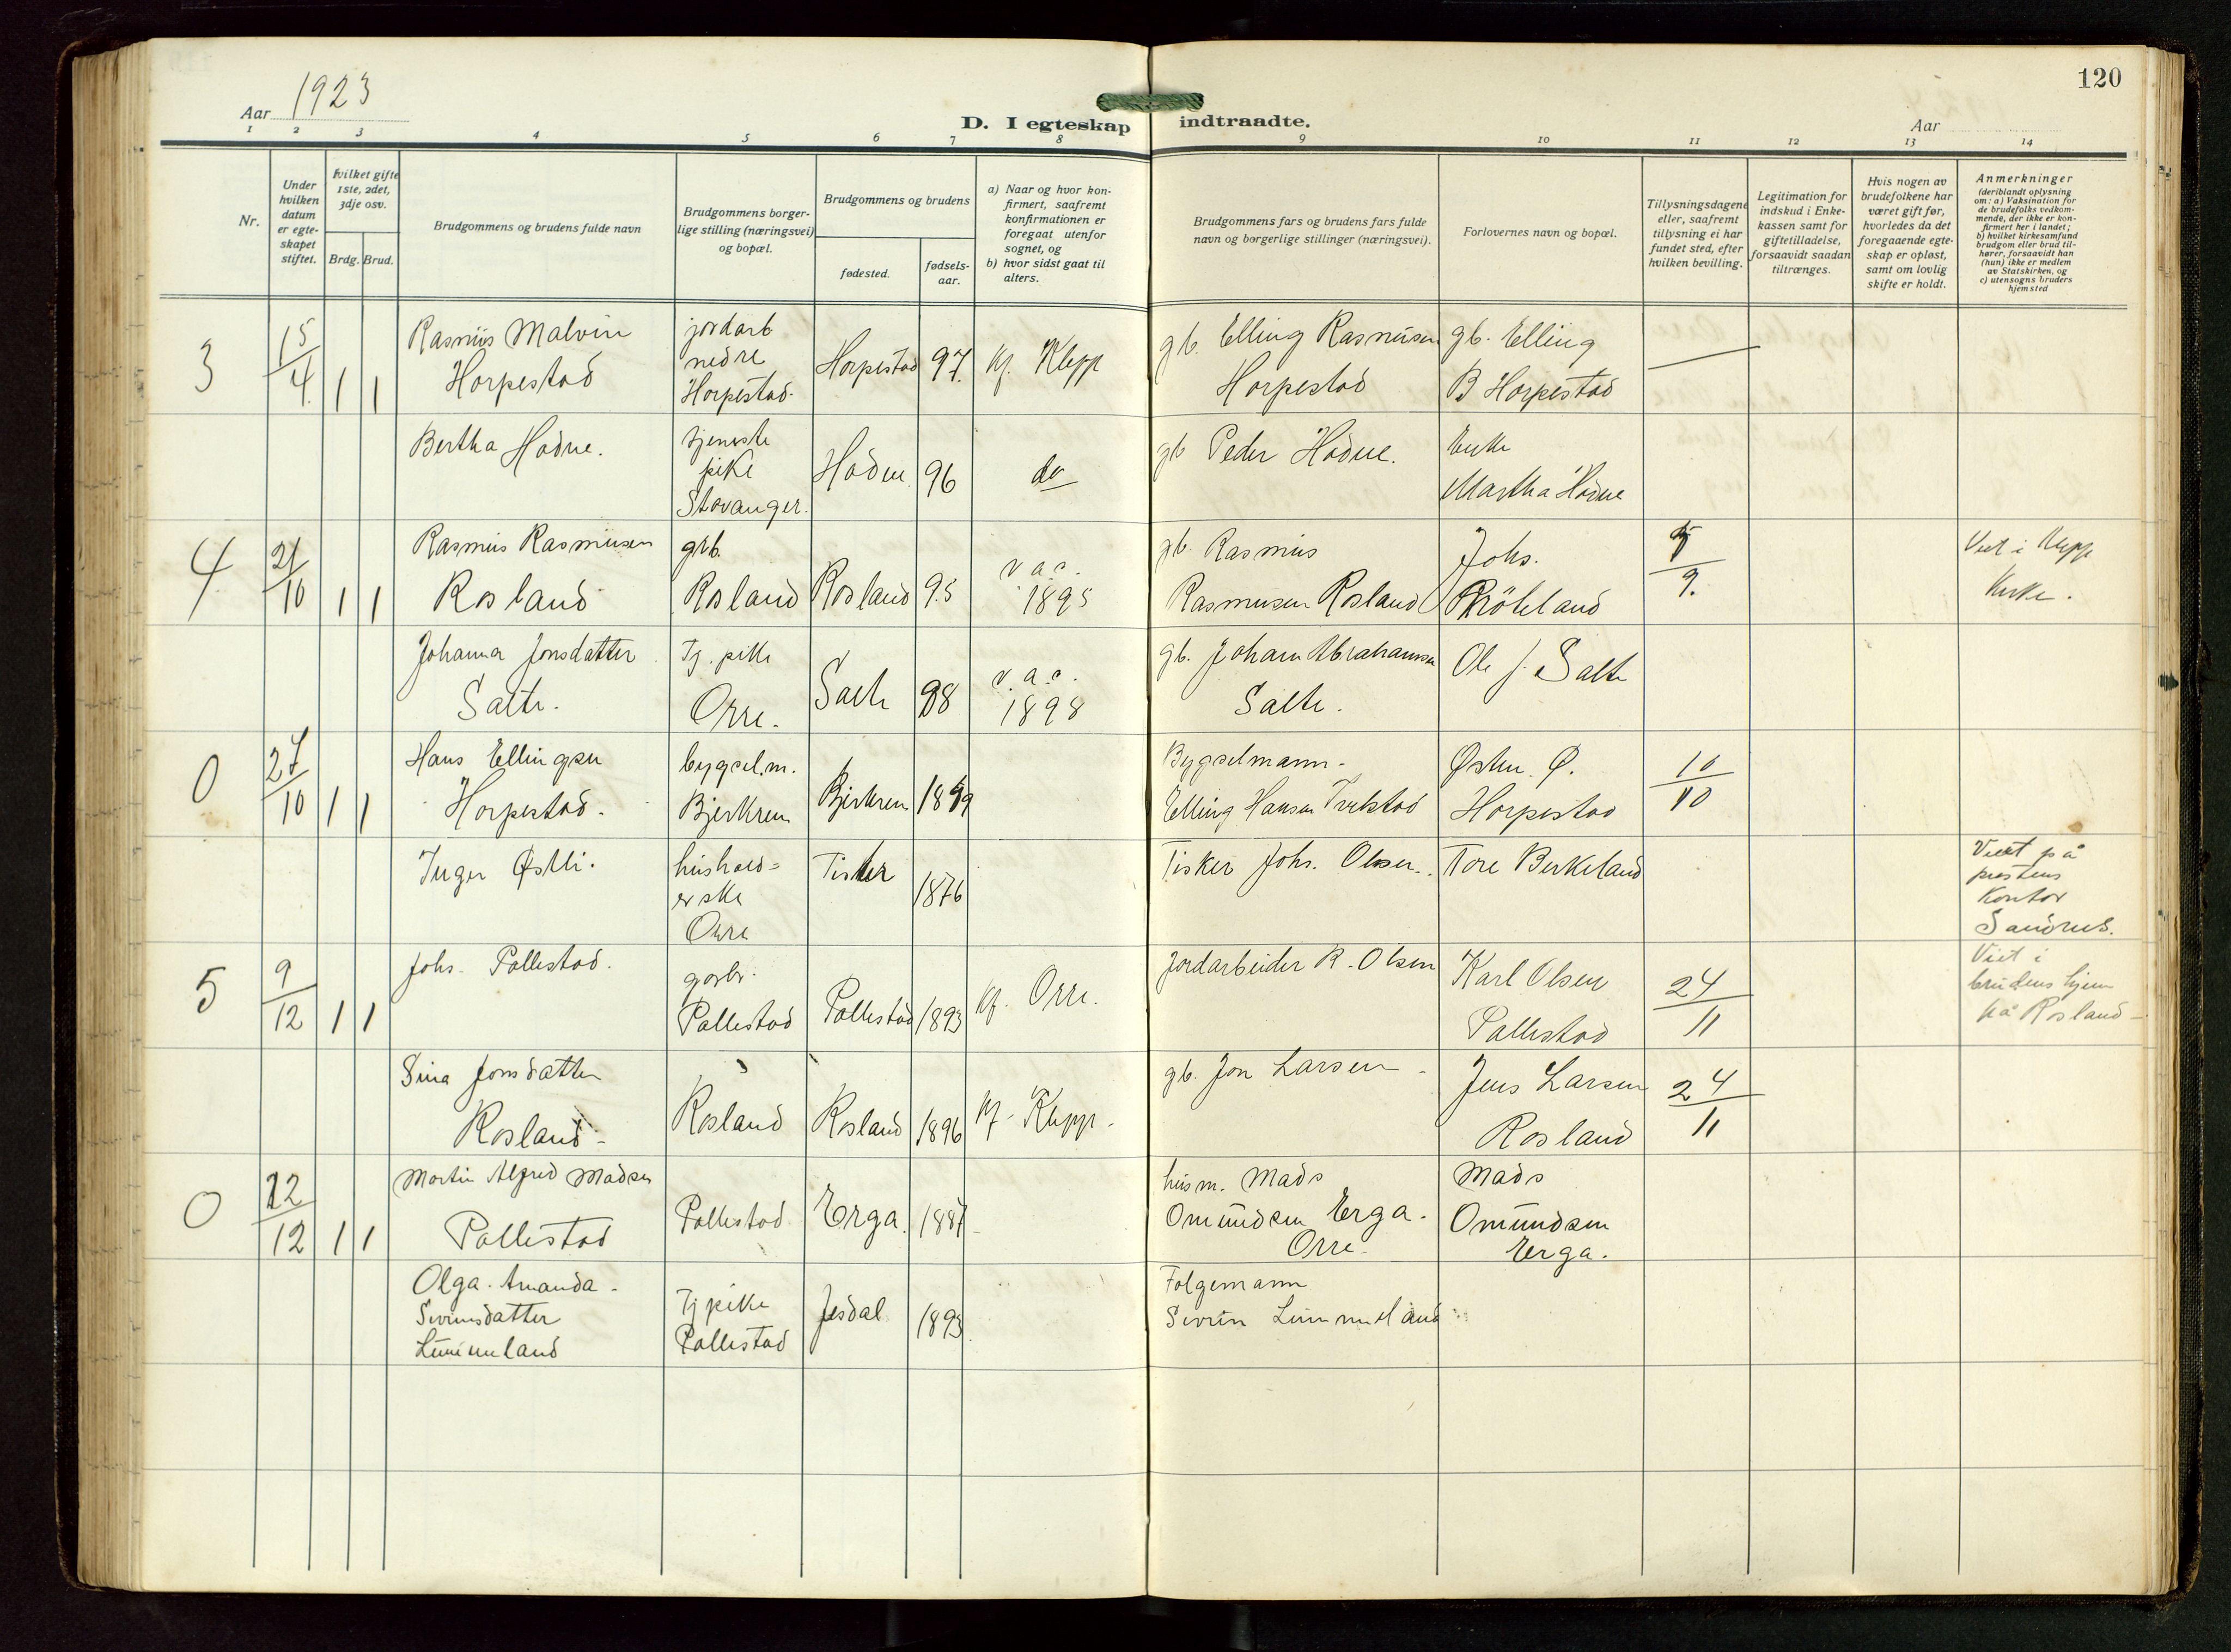 120
Aar 1923
D. I egteskap indtraadte.
Aar
1 2 3 4 5 6 7 8 9 10 11 12 13 14
Nr.
Under hvilken datum er egteskapet stiftet.
hvilket gifte 1ste, 2det, 3dje osv.
Brdg. Brud.
Brudgommens og brudens fulde navn
Brudgommens borgerlige stilling (næringsvei) og bopæl.
Brudgommens og brudens
fødested.
fødselsaar.
a) Naar og hvor konfirmert, saafremt konfirmationen er foregaat utenfor sognet, og
b) hvor sidst gaat til alters.
Brudgommens fars og brudens fars fulde navn og borgerlige stillinger (næringsvei).
Forlovernes navn og bopæl.
Tillysningsdagene eller, saafremt tillysning ei har fundet sted, efter hvilken bevilling.
Legitimation for indskud i Enkekassen samt for giftetilladelse, forsaavidt saadan tiltrænges.
Hvis nogen av brudefolkene har været gift før, hvorledes da det foregaaende egteskap er opløst, samt om lovlig skifte er holdt.
Anmerkninger
(deriblandt oplysning om: a) Vaksination for de brudefolks vedkommende, der ikke er konfirmert her i landet; b) hvilket kirkesamfund brudgom eller brud tilhører, forsaavidt han (hun) ikke er medlem av Statskirken, og c) utensogns bruders hjemsted
3 15/4 1 1
Rasmus Malvin
Horpestad
jordarb
nedre
Horpestad.
Horpestad 97. kf. Klepp
gb. Elling Rasmusen
Horpestad
gb. Elling
B Horpestad
Bertha Hodne.
tjeneste
pike
Stavanger.
Hodne 96 do
gb Peder Hodne.
Enke
Martha Hodne
4 21/10 1 1
Rasmus Rasmusen
Rosland
grb.
Rosland
Rosland 95
v. a. c.
1895
gb. Rasmus
Rasmusen Rosland
Johs.
Brökeland
9.
Viet i Klepp
kirke.
Johanna Jonsdatter
Salte.
Tj. pike
Orre.
Salte 98
v. a. c.
1898
gb. Johan Abrahamsen
Salte.
Ole J. Salte
0 27/10 1 1
Hans Ellingsen
Horpestad.
bygsel.m.
Bjerkrem
Bjerkrem 1899
Bygselmann-
Elling Hansen Tveitstad
Østen. Ø.
Horpestad
10/10
Inger Østli.
hushold=
erske
Orre
Tisker 1876
Tisker Johs. Olsen.
Tore Berkeland
Viet på
prestens
Kontor
Sandnes.
5 9/12 1 1
Johs. Pollestad.
garbr.
Pollestad
Pollestad 1893 kf. Orre.
Jordarbeider R. Olsen
Karl Olsen
Pollestad
24/11
Viet i
brudens hjem
på Rosland-
Sina Jonsdatter
Rosland-
Rosland
Rosland 1896 kf. Klepp.
gb. Jon Larsen-
Jens Larsen
Rosland
24/11
0 22/12 1 1
Martin Alfred Madsen
Pollestad
Pollestad Erga. 1887
husm. Mads
Omundsen Erga.
Orre-
Mads
Omundsen
Erga.
Olga. Amanda-
Sivertsdatter
Limmeland
Tjpike
Pollestad
Jesdal 1893
Folgemann